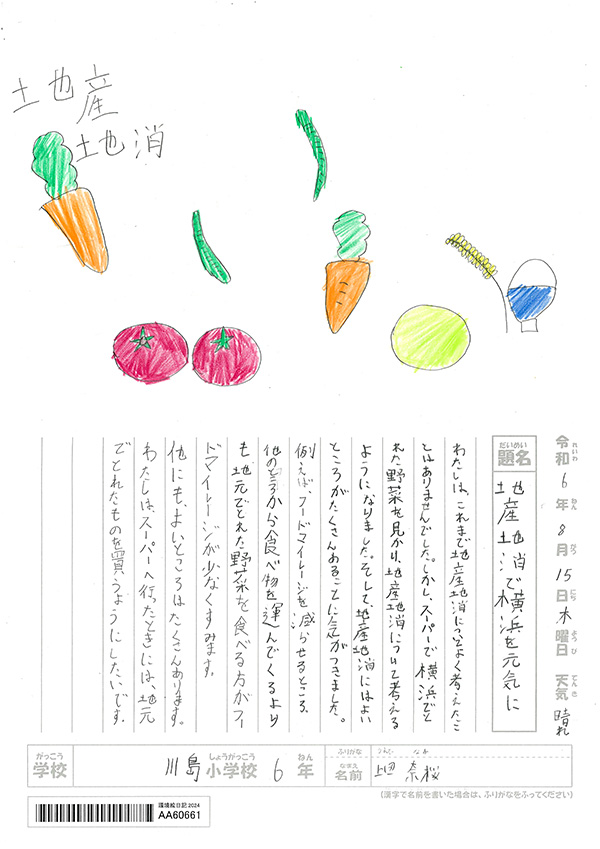 土地産
地消
令和6年8月15日木曜日 天気 晴れ
れいわ ねん がつ にち ようび てんき
だいめい
題名 地産地消で横浜を元気に
わたしは、これまで地産地消についてよく考えたこ
とはありませんでした。しかし、スーパーで横浜でと
れた野菜を見かけ、地産地消について考える
ようになりました。そして、地産地消にはよい
ところがたくさんあることに気がつきました。
例えば、フードマイレージを減らせるところ、
他のところから食べ物を運んでくるより
も地元でとれた野菜を食べる方がフー
ドマイレージが少なくすみます。
他にも、よいところはたくさんあります。
わたしは、スーパーへ行ったときには地元
でとれたものを買うようにしたいです。
がっこう しょうがっこう ねん ふりがな
学校 川島小学校 6年
なまえ
名前 奈桜
(漢字で名前を書いた場合は、ふりがなをふってください)
環境絵日記2024
AA60661